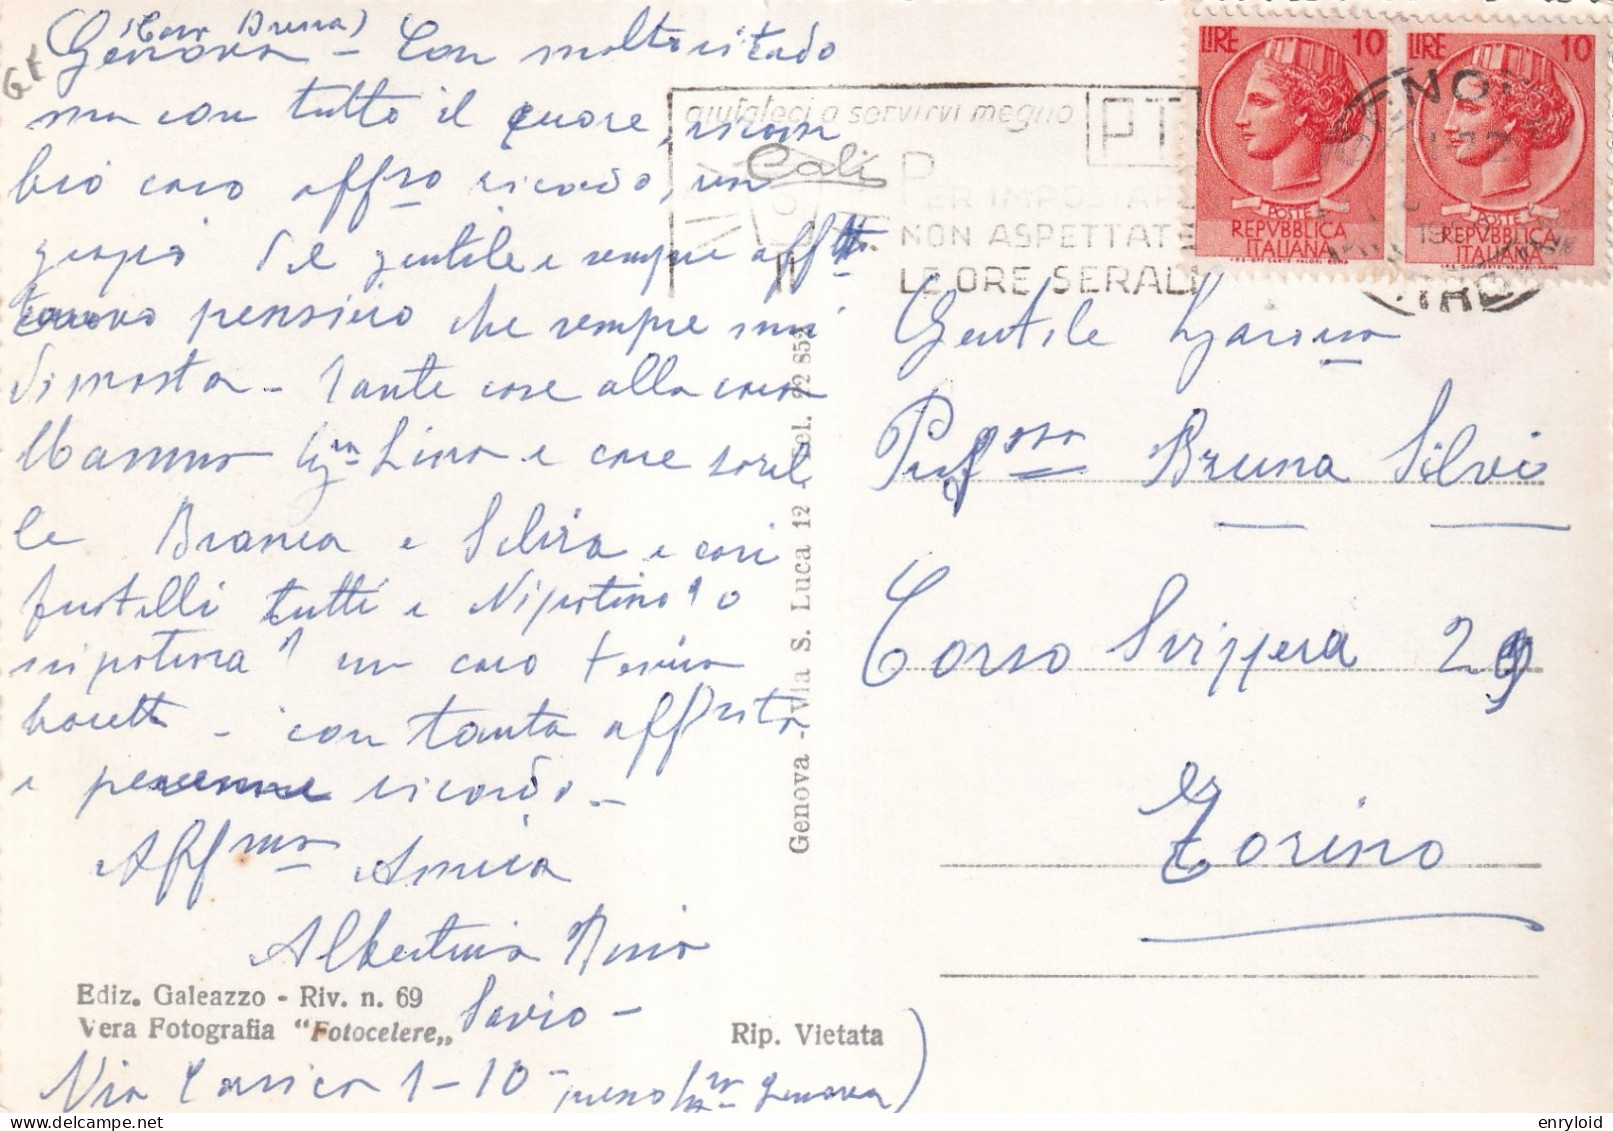 (Cara Bruna)
Genova - Con molto ritardo
ma con tutto il cuore, ricam
bio caro affso ricordo, un
grazie del gentile e sempre afftt
pensiero che sempre mi
dimostra - Tante cose alla cara
Mamma Lina e care sorel
le Bianca e Silvia e cari
fratelli tutti e Nipotino" o
nipotina" un caro
- con tanta
e perenne ricordo -
Affma Amica
Albertina
Savio -
Via Corsica 1-10 - Genova)
GE
Ediz. Galeazzo - Riv. n. 69
Vera Fotografia "Fotocelere„
Rip. Vietata
Genova - Via S. Luca 12 - Tel. 22 852
aiutateci a servirvi meglio
PT
PER IMPOSTARE
NON ASPETTATE
LE ORE SERALI
LIRE 10
POSTE
REPVBBLICA
ITALIANA
LIRE 10
POSTE
REPVBBLICA
ITALIANA
GENOVA
Gentile
Profssa Bruna Silvi
Corso Svizzera 29
Torino
enryloid